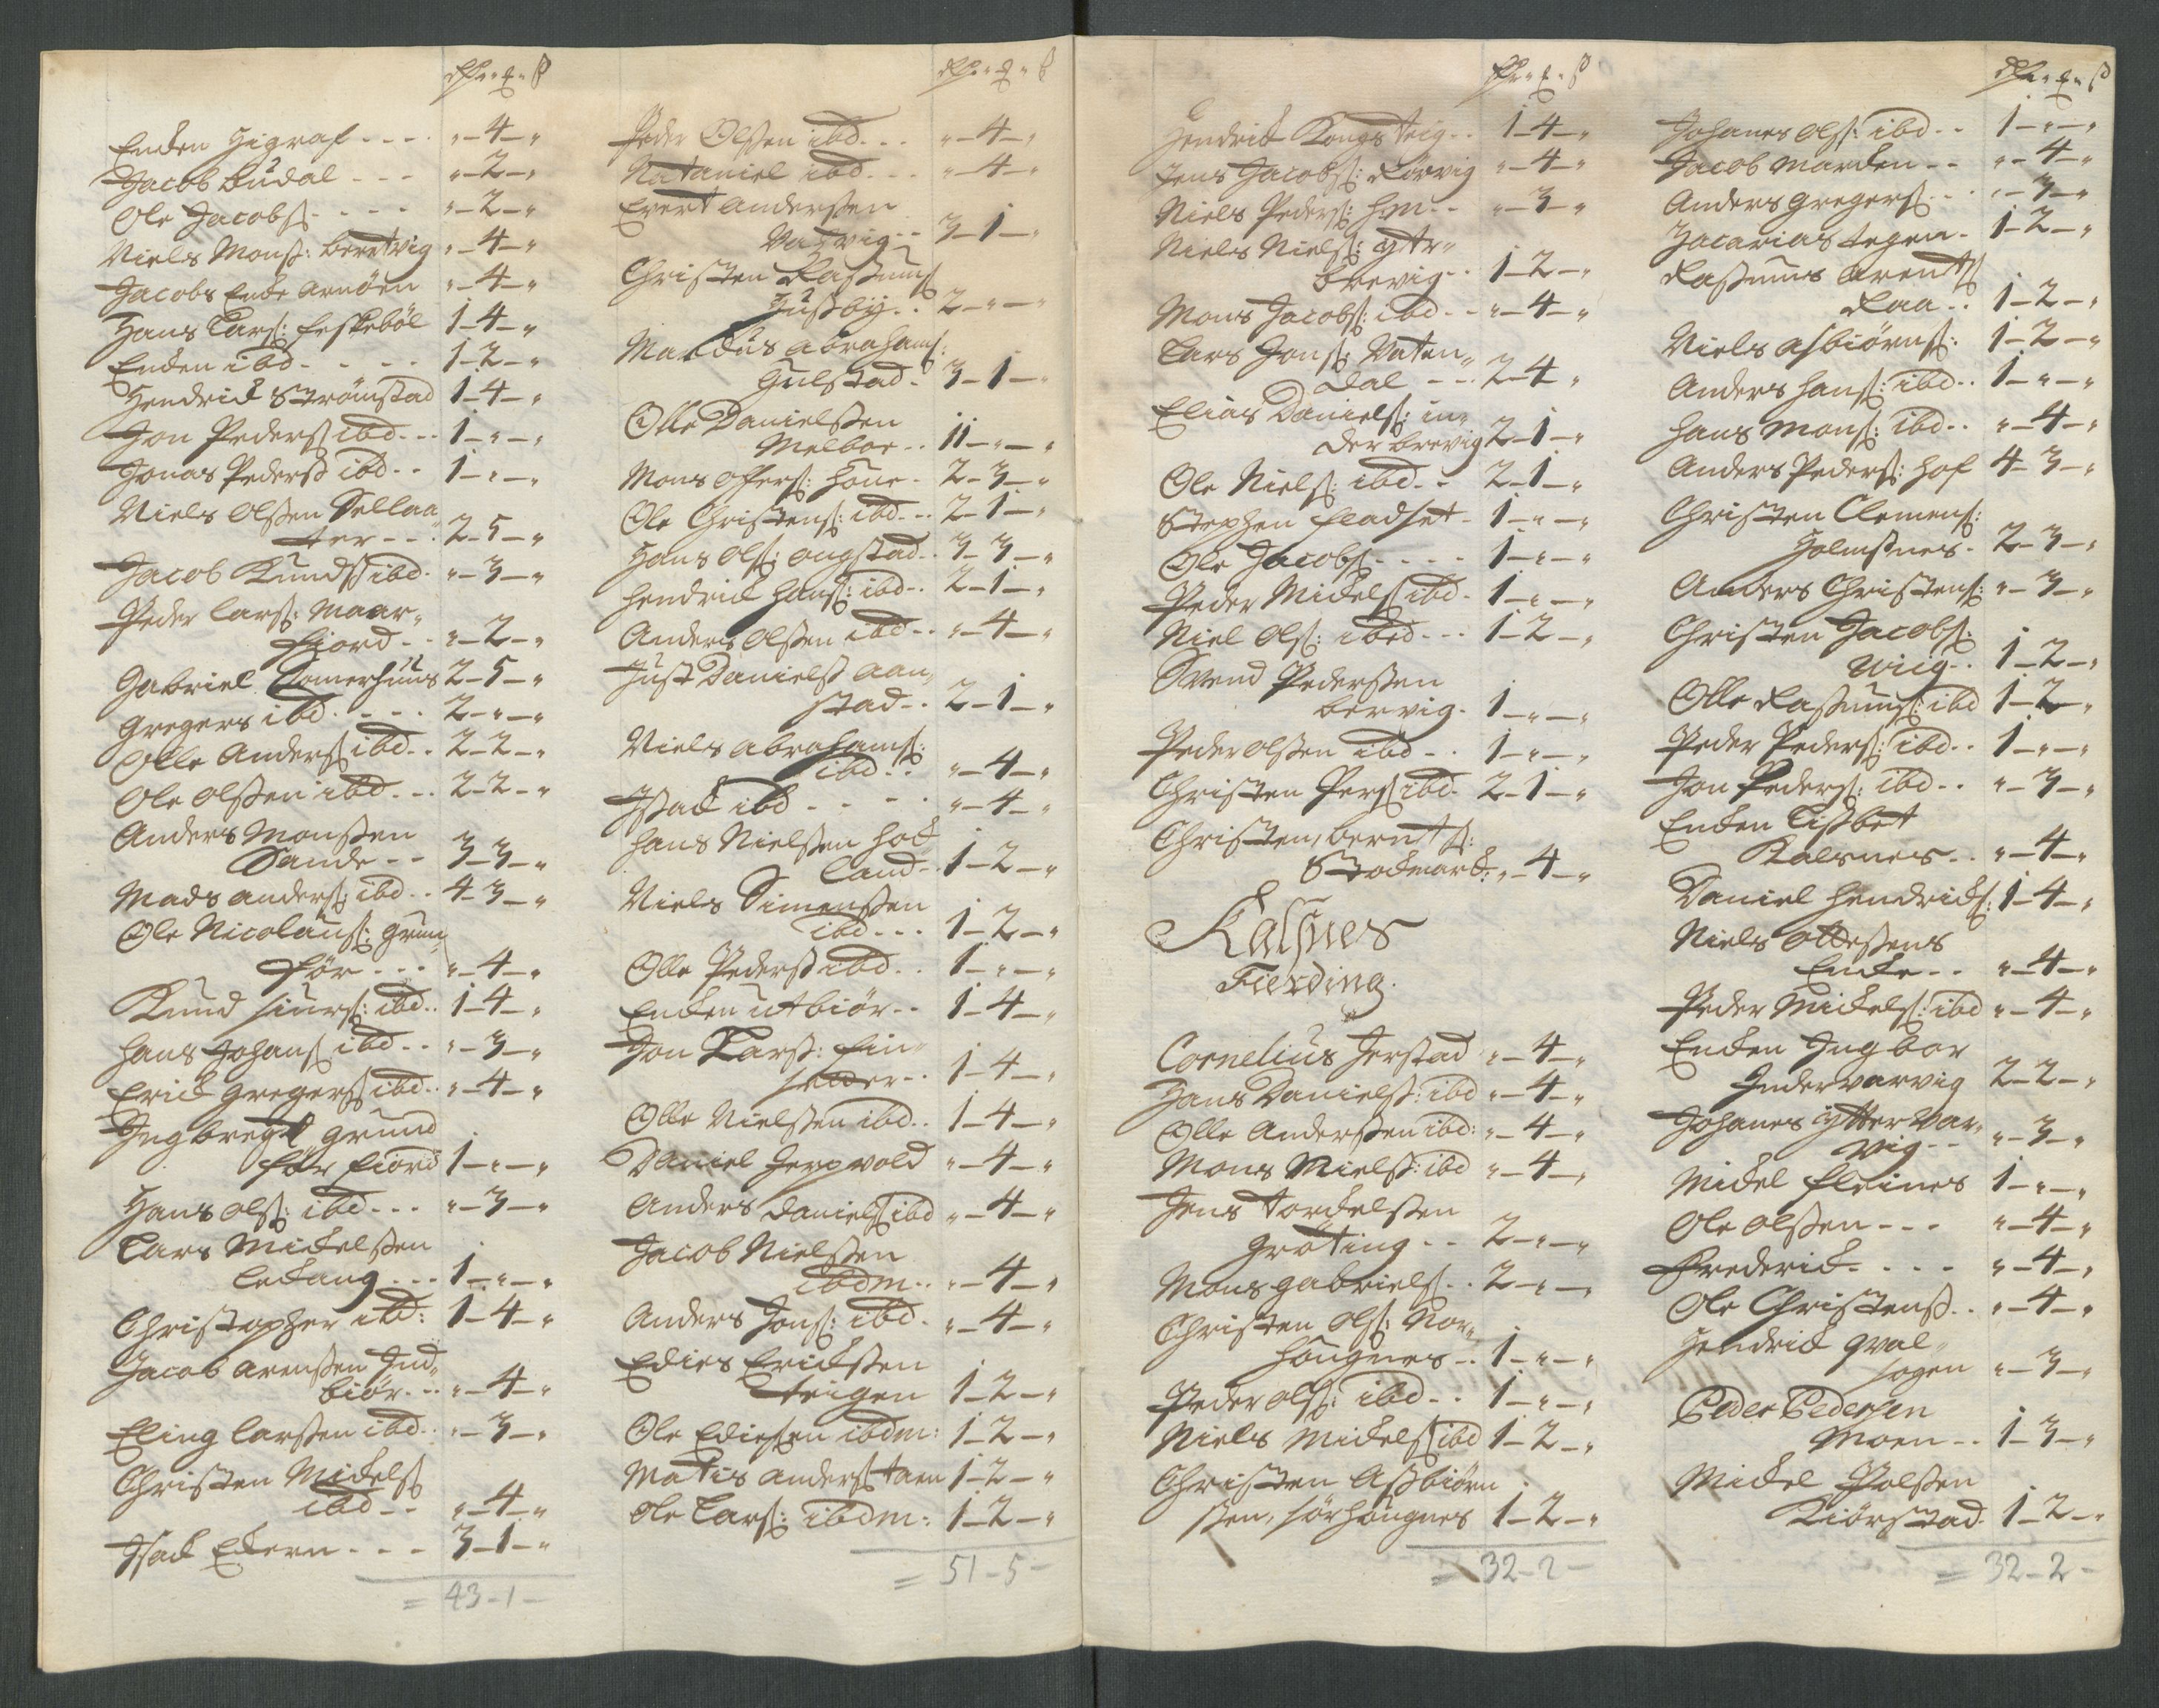 Encken Higraf - - - - „ - 4 - „
Jacob Budal - - - „ - 2 - „
Ole Jacobs: - - - - „ - 2 - „
Niels Monss: bertvig „ - 4 - „
Jacobs Encke Arnöen „ - 4 - „
Hans Lars: Eeskeböl 1 - 4 - „
Encken ibd - - - - 1 - 2 - „
Hendrick Strömstad 1 - 4 - „
Jon Peders ibd - - - 1 - „ - „
Jonas Pederss ibd - - 1 - „ - „
Niels Olssen Sellaa„
ter - - - 2 - 5 - „
Jacob Knuds ibd - „ - 3 - „
Peder Lars: Maar„
fiord - - „ - 2 - „
Gabriel Somerhuus 2 - 5 - „
Gregers ibd - - - - 2 - „ - „
Olle Anders ibd - - 2 - 2 - „
Ole Olssen ibd - - - 2 - 2 - „
Anders Monssen
Sande - - 3 - 3 - „
Mads Anders: ibd - - 4 - 3 - „
Ole Nicolaus: Grun„
för - - - „ - 4 - „
Knud Siurs: ibd - - 1 - 4 - „
Hans Johans ibd - - „ - 3 - „
Erick Gregers ibd - - „ - 4 - „
Ingbregt Grund
för fiord 1 - „ - „
Hans Ols: ibd - - - „ - 3 - „
Lars Mickelssen
Leckang - - - 1 - „ - „
Christopher ibd: 1 - 4 - „
Jacob Arenssen Ind„
biör - - „ - 4 - „
Eling Larssen ibd - - „ - 3 - „
Christen Mickels
ibd - - „ - 4 - „
Isack Eckern - - - 3 - 1 - „
= 43 - 1 -
Peder Olssen ibd - - - „ - 4 - „
Nataniel ibd - - - „ - 4 - „
Evert Anderssen
Vadvig - - 3 - 1 - „
Christen Rassmus
Husbÿ - - 2 - „ - „
Marckus Abrahams:
Gulstad - 3 - 1 - „
Olle Danielssen
Melboe - - 11 - „ - „
Mons Offers: Höne - 2 - 3 - „
Ole Christens: ibd - - 2 - 1 - „
Hans Ols: Ongstad - - 3 - 3 - „
Hendrick Hans: ibd - - 2 - 1 - „
Anders Olssen ibd - - „ - 4 - „
Just Danielss Aan„
stad - - 2 - 1 - „
Niels Abrahams:
ibd - - „ - 4 - „
Isack ibd - - - - „ - 4 - „
Hans Nielssen Hock
land - - 1 - 2 - „
Niels Simenssen
ibd - - - 1 - 2 - „
Olle Pederss ibd - - 1 - „ - „
Encken Utbiör - - 1 - 4 - „
Jon Larss: Ein„
1 - 4 - „
Olle Nielssen ibd - - 1 - 4 - „
Daniel Herpvold „ - 4 - „
Anders Daniels ibd „ - 4 - „
Jacob Nielssen
ibdm - - „ - 4 - „
Anders Jons: ibd - „ - 4 - „
Edies Erickssen
teigen 1 - 2 - „
Ole Ediessen ibdm: 1 - 2 - „
Matis Anders taen 1 - 2 - „
Ole Lars: ibdm: 1 - 2 - „
= 51 - 5 -
Hendrick Kongsteig - - 1 - 4 - „
Jens Jacobs: Rörvig „ - 4 - „
Niels Peders: hm - - „ - 3 - „
Niels Niels: Ytr„
brevig - - 1 - 2 - „
Mons Jacobs: ibd - - „ - 4 - „
Lars Jons: Vaten„
dal - - - 2 - 4 - „
Elias Daniels: in„
der brevig 2 - 1 - „
Ole Niels: ibd - - 2 - 1 - „
Stephen Fladset - 1 - „ - „
Ole Jacobs: - - - - 1 - „ - „
Peder Mickels ibd - 1 - „ - „
Niel Ols: ibed - - - 1 - 2 - „
Svend Pederssen
bervig - 1 - „ - „
Peder Olssen ibd - - 1 - „ - „
Christen Pers ibd - 2 - 1 - „
Christen berents:
Stockmarck: „ - 4 - „
Kalsnes
Fierding.
Cornelius Jerstad „ - 4 - „
Hans Danielss: ibd „ - 4 - „
Olle Anderssen ibd: „ - 4 - „
Mons Nielss: ibd „ - 4 - „
Jens Torckelssen
Gröting - - 2 - „ - „
Mons Gabriels: - - 2 - „ - „
Christen Ols: Nor„
höugnes - - 1 - „ - „
Peder Ols: ibd - - 1 - „ - „
Niels Mickels ibd 1 - 2 - „
Christen Assbiörn
ssen, Sörhöugnes 1 - 2 - „
= 32 - 2 -
Johanes Ols: ibd - - 1 - „ - „
Jacob Marcken - - „ - 4 - „
Anders Gregers: - - „ - 3 - „
Zacarias Tegen - 1 - 2 - „
Rassmus Arents
Raa - - 1 - 2 - „
Niels Asbiörns: 1 - 2 - „
Anders Hans: ibd - - 1 - „ - „
Hans Mons: ibd - - „ - 4 - „
Anders Peders: Hof 4 - 3 - „
Christen Clemens:
Holmsnes - 2 - 3 - „
Anders Christens: „ - 3 - „
Christen Jacobs:
Wiig - - 1 - 2 - „
Olle Rassmus: ibd 1 - 2 - „
Peder Peders: ibd - - 1 - „ - „
Jon Peders: ibd - - „ - 3 - „
Encken Lisbet
Kalsnes - - „ - 4 - „
Daniel Hendricks: 1 - 4 - „
Niels Ottessens
Encke - - „ - 4 - „
Peder Mickels: ibd „ - 4 - „
Encken Ingbor
Indervarvig 2 - 2 - „
Johanes Ytter Var„
vig - - „ - 3 - „
Mickel Fleines 1 - „ - „
Ole Olssen - - - „ - 4 - „
Frederick - - - - „ - 4 - „
Ole Christenss - - „ - 4 - „
Hendrick Qval„
sogen „ - 3 - „
Peder Pedersen
Moen - - 1 - 3 - „
Mickel Polssen
Kiörstad - 1 - 2 - „
= 32 - 2 -